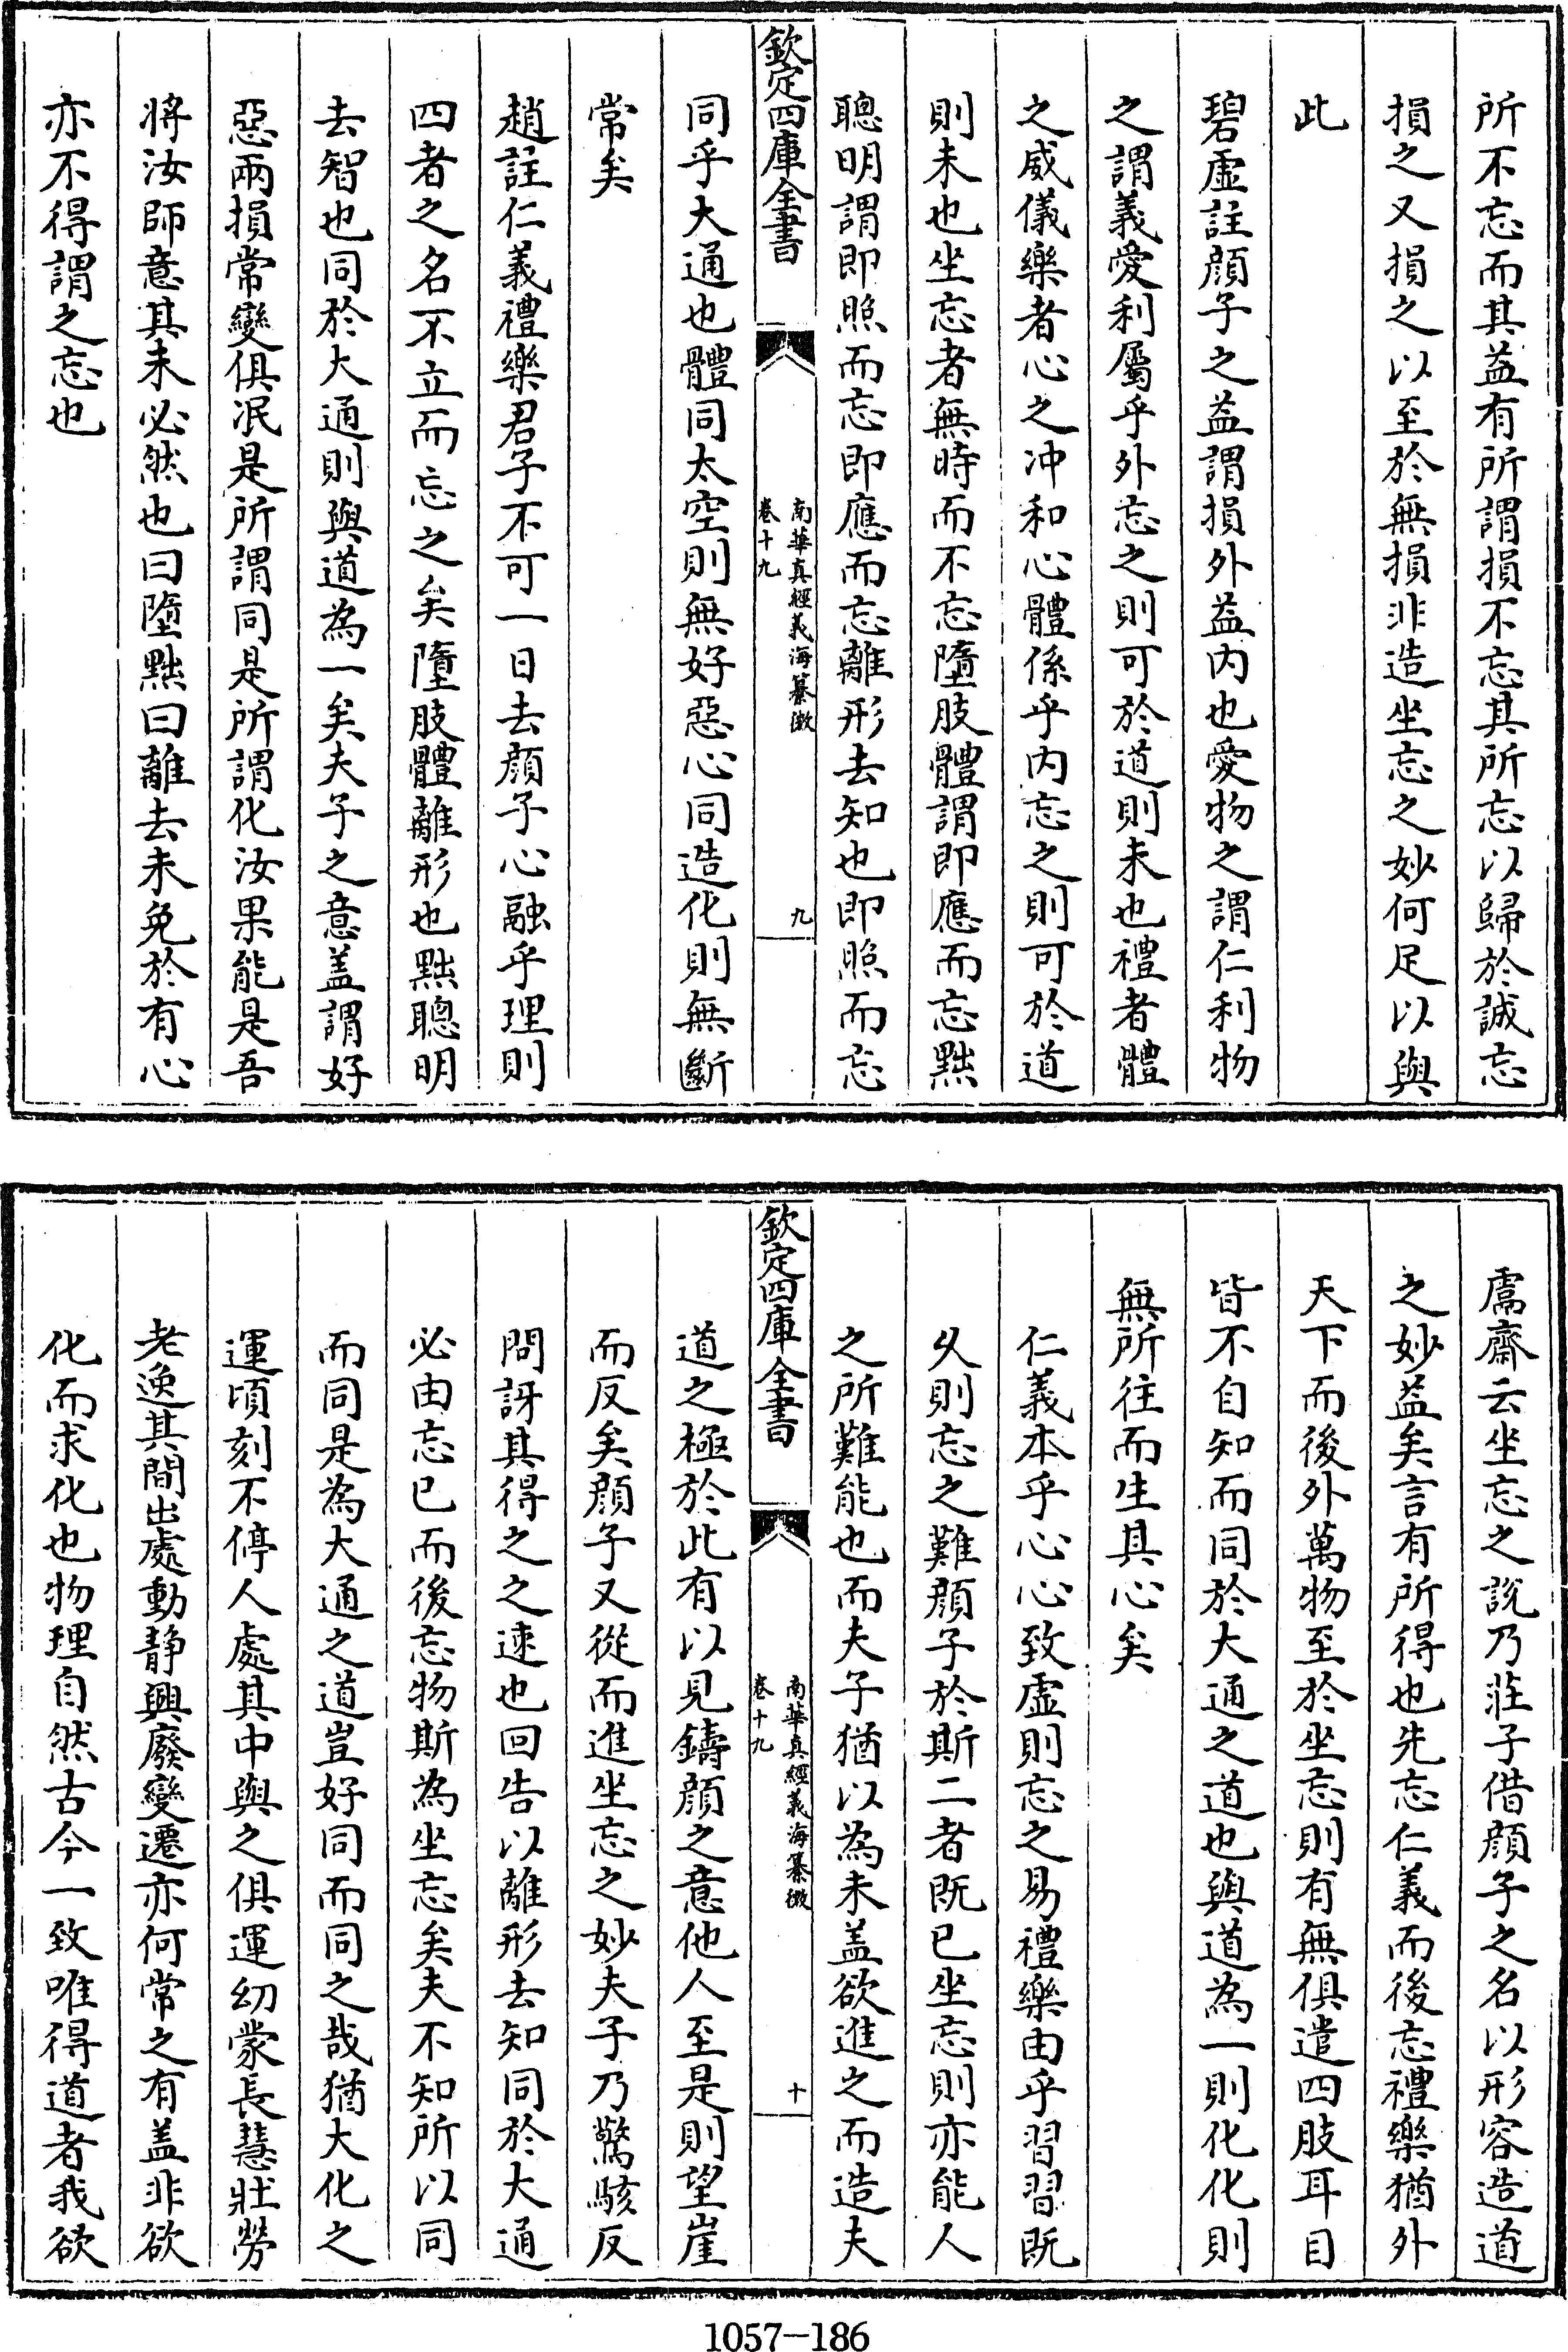 所不忘而其益有所謂損不忘其所忘以歸於誠忘
損之又損之以至於無損非造坐忘之妙何足以與
此
碧虛註顔子之益謂損外益内也愛物之謂仁利物
之謂義愛利屬乎外忘之則可於道則未也禮者體
之威儀樂者心之冲和心體係乎内忘之則可於道
則未也坐忘者無時而不忘墮肢體謂即應而忘黜
聰明謂即照而忘即應而忘離形去知也即照而忘
欽定四庫全書
南華真經義海纂微
卷十九
九
同乎大通也體同太空則無好惡心同造化則無斷
常矣
趙註仁義禮樂君子不可一日去顔子心融乎理則
四者之名不立而忘之矣墮肢體離形也黜聰明
去智也同於大通則與道為一矣夫子之意盖謂好
惡兩損常變俱泯是所謂同是所謂化汝果能是吾
將汝師意其未必然也曰墮黜曰離去未免於有心
亦不得謂之忘也
鬳齋云坐忘之說乃莊子借顔子之名以形容造道
之妙益矣言有所得也先忘仁義而後忘禮樂猶外
天下而後外萬物至於坐忘則有無俱遣四肢耳目
皆不自知而同於大通之道也與道為一則化化則
無所往而生其心矣
仁義本乎心心致虛則忘之易禮樂由乎習習既
乆則忘之難顔子於斯二者既已坐忘則亦能人
之所難能也而夫子猶以為未盖欲進之而造夫
欽定四庫全書
南華真經義海纂微
卷十九
十
道之極於此有以見鑄顔之意他人至是則望崖
而反矣顔子又從而進坐忘之妙夫子乃驚駭反
問訝其得之之速也回告以離形去知同於大通
必由忘已而後忘物斯為坐忘矣夫不知所以同
而同是為大通之道豈好同而同之哉猶大化之
運頃刻不停人處其中與之俱運幻蒙長慧壯勞
老逸其間出處動静興廢變遷亦何常之有盖非欲
化而求化也物理自然古今一致唯得道者我欲
1057-186